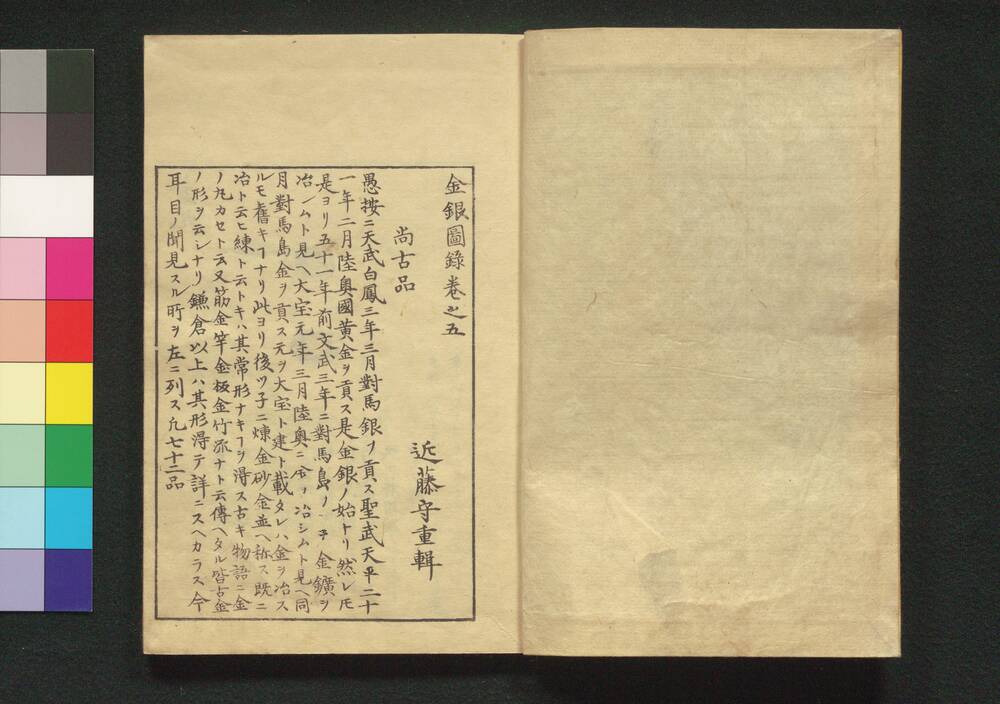 金銀圖錄卷之五
尚古品
近藤守重輯
愚按ニ天武白鳳三年三月對馬銀ヲ貢ス聖武天平二十
一年二月陸奥國黄金ヲ貢ス是金銀ノ始トリ然レ𪜈
是ヨリ五十一年前文武三年ニ對馬島ノ ヲ金鑛ヲ
冶シムト見ヘ大宝元年三月陸奥ニ金ヲ冶シムト見ヘ同
月對馬島金ヲ貢ス元ヲ大宝ト建ト載タレハ金ヲ冶ス
ルモ舊キヿナリ此ヨリ後ツ子ニ煉金砂金並ヘ称ス既ニ
冶ト云ヒ練ト云トキハ其常形ナキヿヲ得ス古キ物語ニ金
ノ丸カセト云又筋金竿金板金竹流ナト云傳ヘタル皆古金
ノ形ヲ云シナリ鎌倉以上ハ其形得テ詳ニスヘカラス今
耳目ノ聞見スル所ヲ左ニ列ス凢七十二品